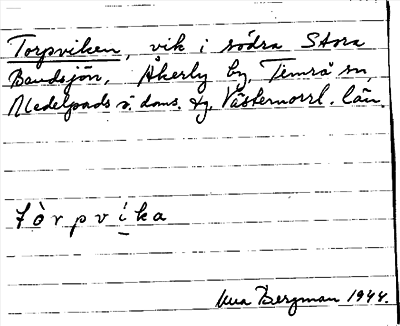 Torpviken, vik i södra Stora
Bandsjön, Åkerby by, Timrå sn,
Medelpads ö. doms. tg, Västernorrl. län.
tòrpvika
Bergman 1944.